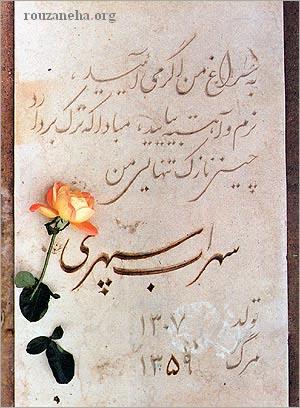 rouzaneha.org
به سراغ من اگر می آیید،
نرم و آهسته بیایید، مبادا که ترک بردارد
چینی نازک تنهایی من
سهراب سپهری
تولد ۱۳۰۷
مرگ ۱۳۵۹